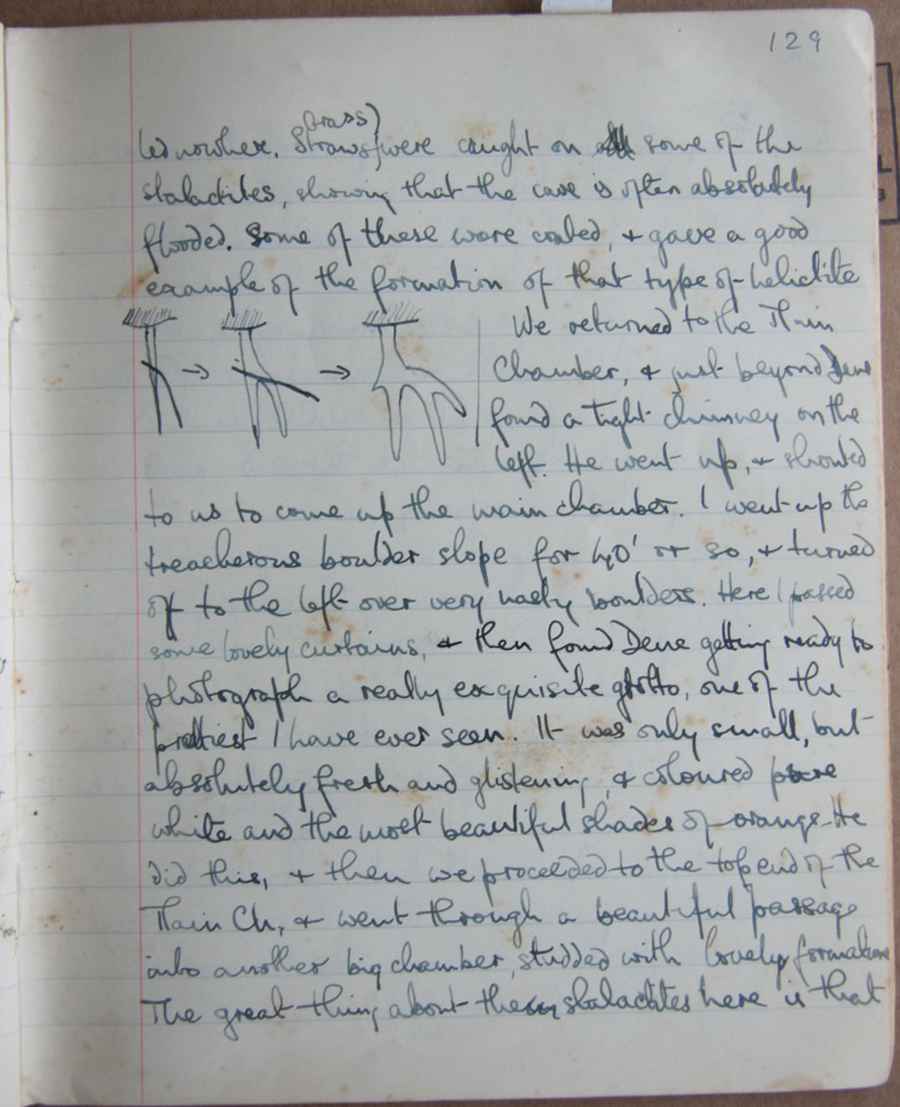 129
led nowhere. Straws (grass) were caught on some of the
stalactites, showing that the cave is often absolutely
flooded. Some of these were coated, & gave a good
example of the formation of that type of helictite
We returned to the Main
Chamber, & just beyond Dene
found a tight chimney on the
left. He went up, & shouted
to us to come up the main chamber. I went up the
treacherous boulder slope for 40' or so, & turned
off to the left over very nasty boulders. Here I passed
some lovely curtains, & then found Dene getting ready to
photograph a really exquisite grotto, one of the
prettiest I have ever seen. It was only small, but
absolutely fresh and glistening, & coloured pure
white and the most beautiful shades of orange. He
did this, & then we proceeded to the top end of the
Main Ch, & went through a beautiful passage
into another big chamber, studded with lovely formations
The great thing about the stalactites here is that